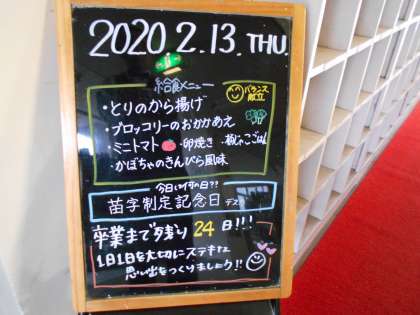 2020 2.13. THU.
給食メニュー
バランス
献立
・とりのから揚げ
・ブロッコリーのおかかあえ
・ミニトマト ・卵焼き ・梅じゃこごはん
・かぼちゃのきんぴら風味
今日は何の日??
苗字制定記念日 デス
卒業まで残り 24 日!!!
1日1日を大切にステキな
思い出をつくりましょう!!